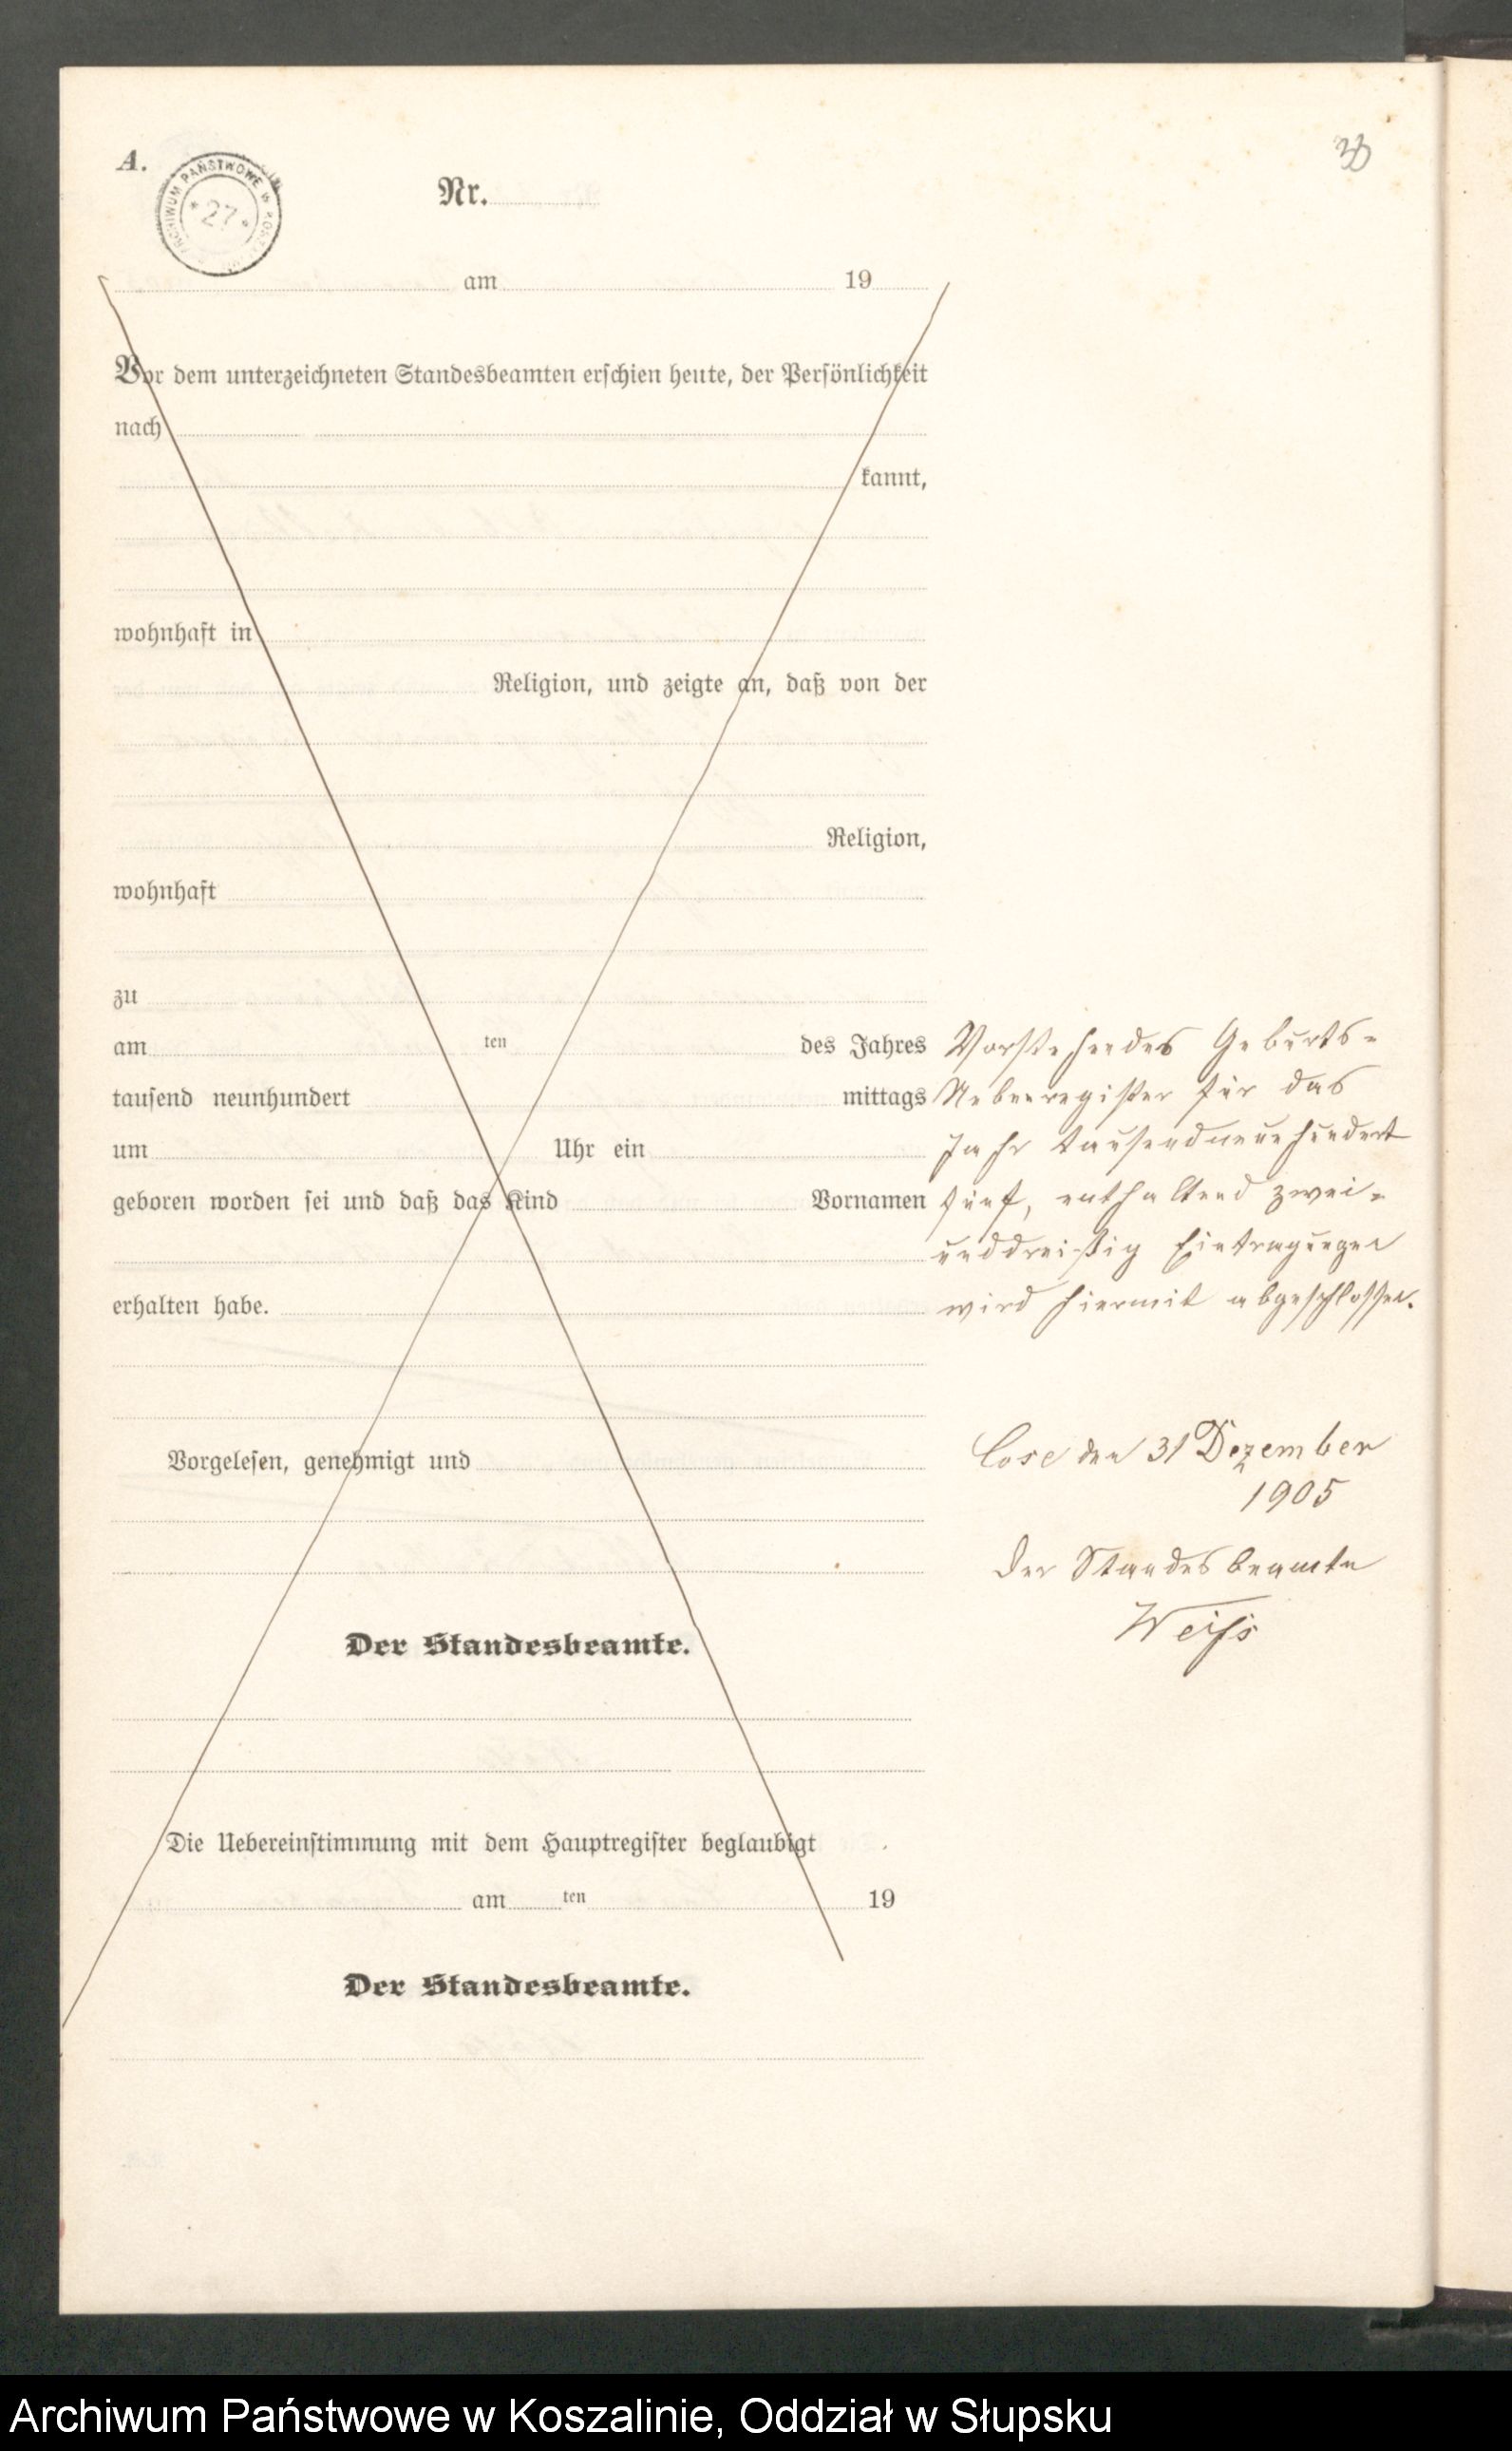 A.
ARCHIWUM PAŃSTWOWE W
* 27 *
Nr.
am 19
Vor dem unterzeichneten Standesbeamten erschien heute, der Persönlichkeit
nach
kannt,
wohnhaft in
Religion, und zeigte an, daß von der
Religion,
wohnhaft
zu
am ten des Jahres
tausend neunhundert mittags
um Uhr ein
geboren worden sei und daß das Kind Vornamen
erhalten habe.
Vorgelesen, genehmigt und
Der Standesbeamte.
Die Uebereinstimmung mit dem Hauptregister beglaubigt
am ten 19
Der Standesbeamte.
Vorstehendes Geburts-
Nebenregister für das
Jahr tausendneunhundert
fünf, enthaltend zwei-
unddreißig Eintragungen
wird hiermit abgeschlossen.
Cose den 31 Dezember
1905
Der Standesbeamte
Weiss
Archiwum Państwowe w Koszalinie, Oddział w Słupsku